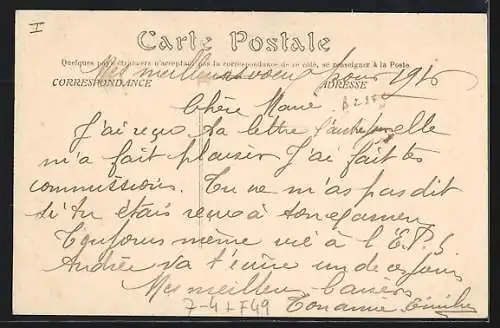 I
Carte Postale
Quelques pays étrangers n'acceptant pas la correspondance de ce côté, se renseigner à la Poste
Mes meilleurs voeux pour 1916
CORRESPONDANCE ADRESSE
Chère Marie
J'ai reçu ta lettre l'autre jour elle
m'a fait plaisir J'ai fait tes
commissions. Tu ne m'as pas dit
si tu étais reçue à ton examen
Toujours même vie à l'E.P.S
Andrée va t'écrire un de ces jours
Mes meilleurs baisers
7-4 F49 Ton amie Émilie